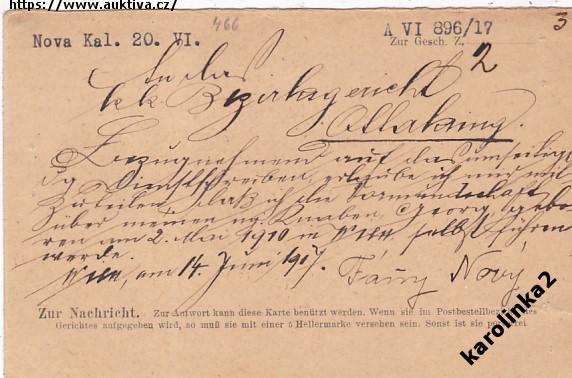 https://www.auktiva.cz/
466
Nova Kal. 20. VI.
A VI 896/17
Zur Gesch. Z.
3
2
An das
k.k. Bezirksgericht
Ottakring.
Bezugnehmend auf das umseitige
Dienstschreiben, erlaube ich mir mit
zuteilen, daß ich die Vormundschaft
über meinen Knaben, Georg, gebo
ren am 2. Mai 1910 in Wien selbst führen
werde.
Wien, am 14. Juni 1917.
Fany Novy
Zur Nachricht. Zur Antwort kann diese Karte benützt werden. Wenn sie im Postbestellbezirke des
Gerichtes aufgegeben wird, so muß sie mit einer 5 Hellermarke versehen sein. Sonst ist sie portofrei
karolinka2